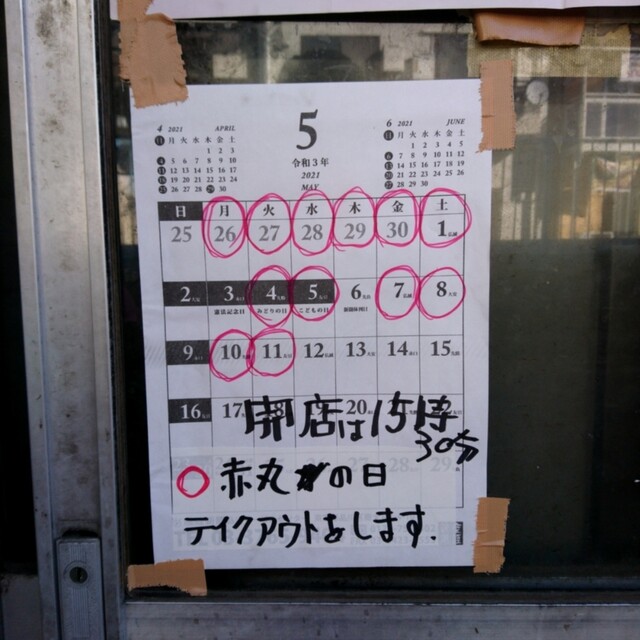 4 2021 APRIL
日 月 火 水 木 金 土
1 2 3
4 5 6 7 8 9 10
11 12 13 14 15 16 17
18 19 20 21 22 23 24
25 26 27 28 29 30
5
令和3年
2021
MAY
6 2021 JUNE
日 月 火 水 木 金 土
1 2 3 4 5
6 7 8 9 10 11 12
13 14 15 16 17 18 19
20 21 22 23 24 25 26
27 28 29 30
日 月 火 水 木 金 土
25 26 27 28 29 30 1仏滅
2大安 3赤口 4先勝 5友引 6先負 7仏滅 8大安
憲法記念日 みどりの日 こどもの日
9赤口 10 11 12仏滅 13大安 14赤口 15
16 17 18 19 20
開店は15時
30分
○赤丸の日
28 29
テイクアウトをします.